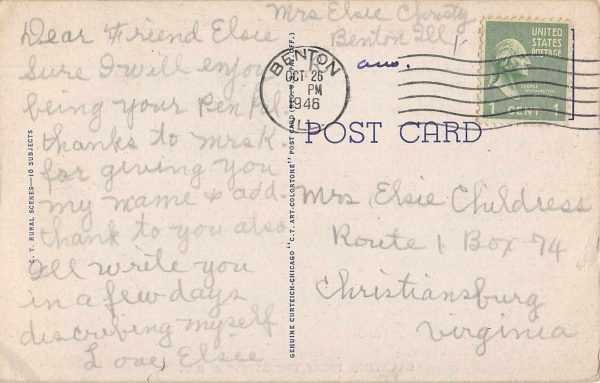 Mrs Elsie Christy
Benton Ill
Dear Friend Elsie
Sure I will enjoy
being your Pen Pal
thanks to Mrs K.
for giving you
my name & add.
thank to you also
I'll write you
in a few days
describing myself
Love, Elsie
ans.
BENTON
OCT 26
PM
1946
ILL.
UNITED
STATES
POSTAGE
GEORGE
WASHINGTON
1 CENT 1
POST CARD
Mrs Elsie Childress
Route 1 Box 74
Christiansburg
Virginia
C. T. RURAL SCENES—10 SUBJECTS
GENUINE CURTEICH-CHICAGO "C.T. ART-COLORTONE" POST CARD (REG. U.S. PAT. OFF.)